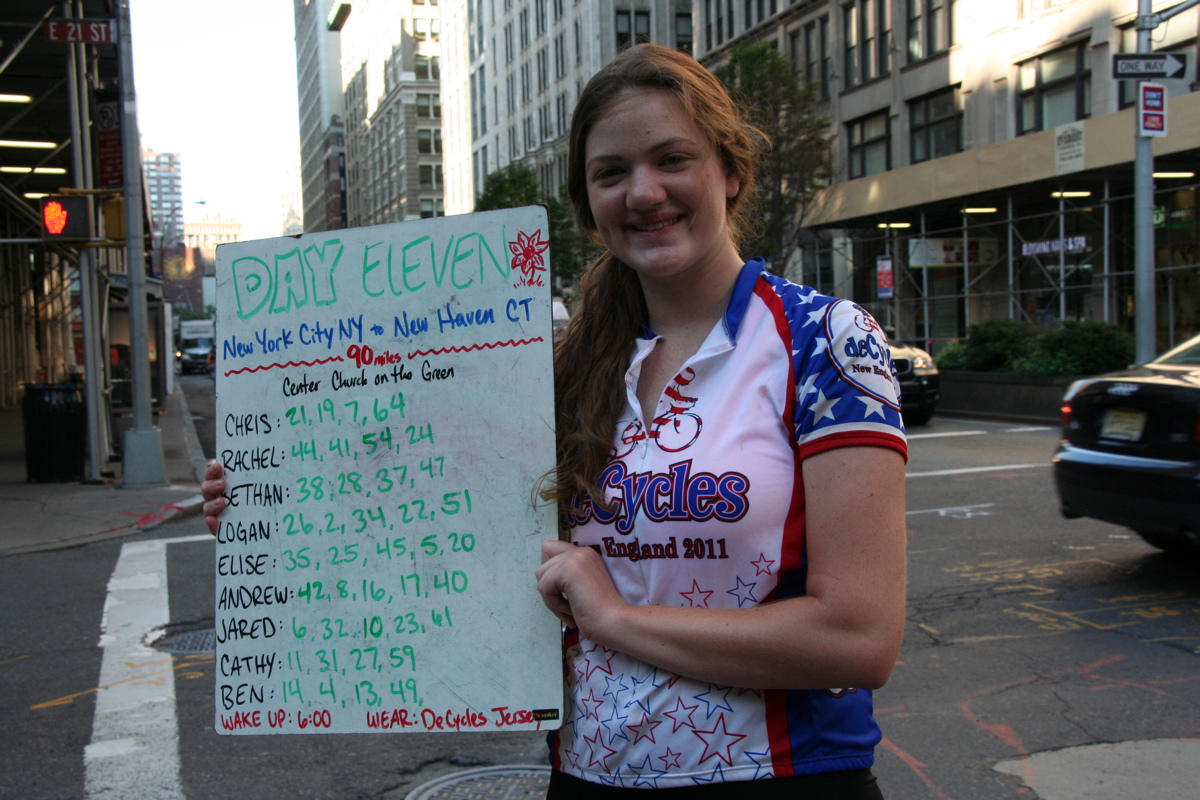 E 21 ST
ONE WAY
DON'T
DAY ELEVEN
New York City NY to New Haven CT
90 miles
Center Church on the Green
CHRIS: 21, 19, 7, 64
RACHEL: 44, 41, 54, 24
BETHAN: 38, 28, 37, 47
LOGAN: 26, 2, 34, 22, 51
ELISE: 35, 25, 45, 5, 20
ANDREW: 42, 8, 16, 17, 40
JARED: 6, 32, 10, 23, 61
CATHY: 11, 31, 27, 59
BEN: 14, 4, 13, 49,
WAKE UP: 6:00 WEAR: DeCycles Jersey
deCycles
England 2011
deCyc
New Engl